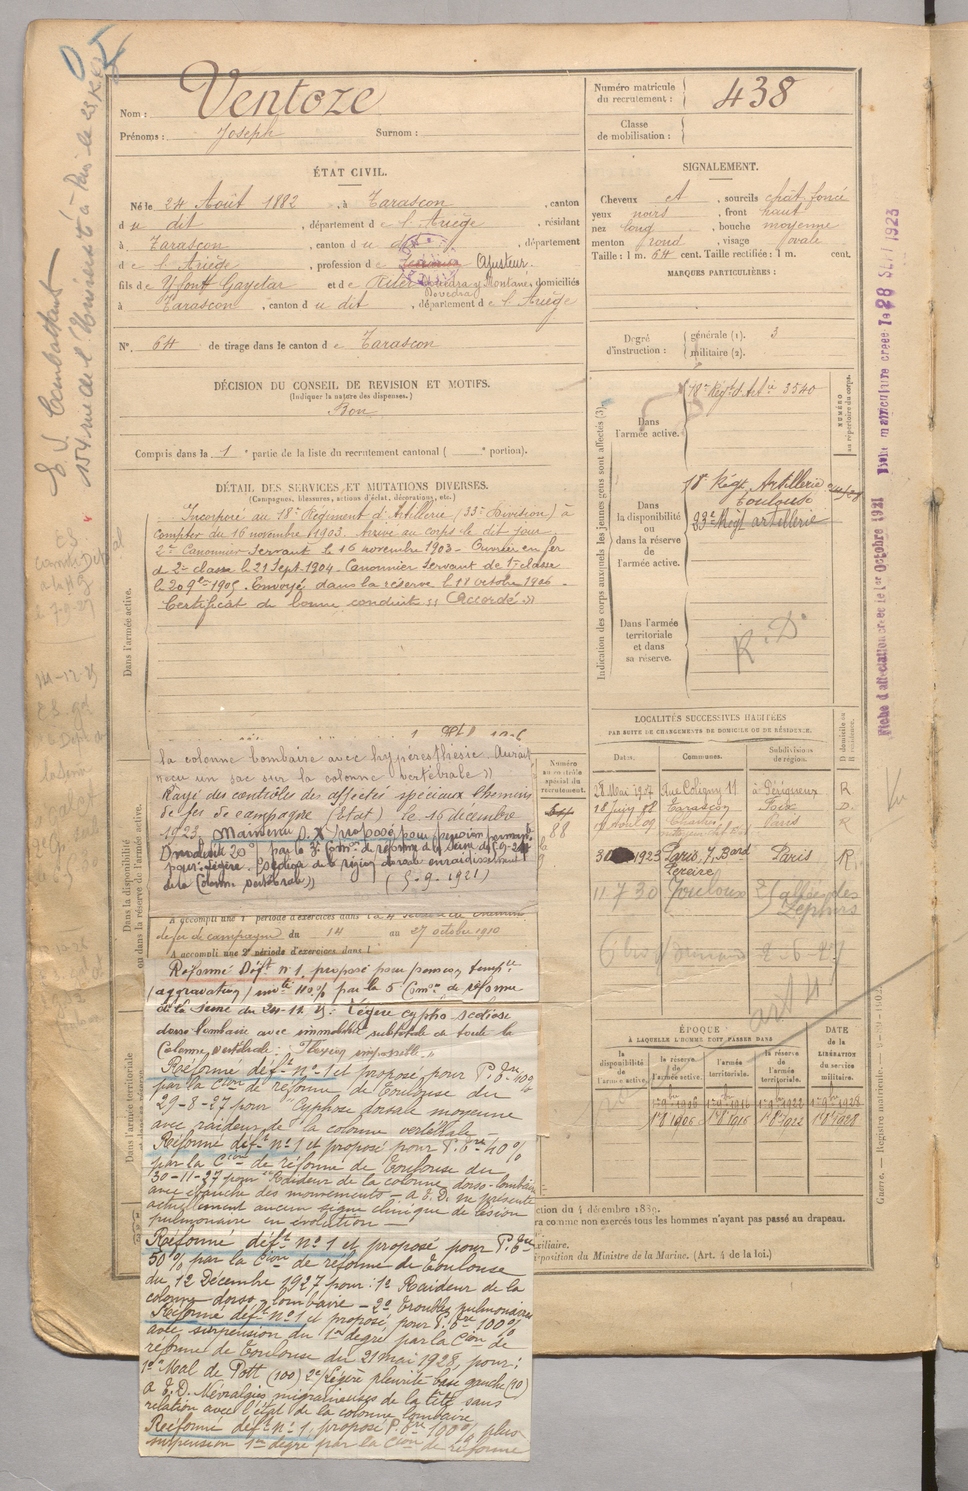 Nom : Ventoze
Prénoms : Joseph Surnom :
Numéro matricule du recrutement : 438
Classe de mobilisation :
ÉTAT CIVIL.
Né le 24 Août 1882, à Tarascon, canton
du dit, département de l'Ariège, résidant
à Tarascon, canton du dit, département
de l'Ariège, profession de Ajusteur.
fils de Yfont Gayetar et de domiciliés
à Tarascon, canton du dit, département de l'Ariège
N° 64 de tirage dans le canton de Tarascon
SIGNALEMENT.
Cheveux et, sourcils chât. foncé
yeux noirs, front haut
nez long, bouche moyenne
menton rond, visage ovale
Taille : 1 m. 64 cent. Taille rectifiée : 1 m. cent.
MARQUES PARTICULIÈRES :
Degré d'instruction : générale (1). 3
militaire (2).
DÉCISION DU CONSEIL DE REVISION ET MOTIFS.
(Indiquer la nature des dispenses.)
Bon
Compris dans la 1e partie de la liste du recrutement cantonal ( e portion).
DÉTAIL DES SERVICES ET MUTATIONS DIVERSES.
(Campagnes, blessures, actions d'éclat, décorations, etc.)
Dans l'armée active.
Incorporé au 18e Régiment d'Artillerie (33e Division) à
compter du 16 novembre 1903. Arrivé au corps le dit jour
2e Canonnier Servant le 16 novembre 1903 - Ouvrier en fer
de 2e classe le 21 Sept. 1904 - Canonnier Servant de 1e classe
le 20 9bre 1905. Envoyé dans la réserve le 18 octobre 1906 -
Certificat de bonne conduite "Accordé"
Indication des corps auxquels les jeunes gens sont affectés (3).
NUMÉRO au répertoire du corps.
Dans l'armée active. 18e Régt d'Artie 3540
Dans la disponibilité ou dans la réserve de l'armée active. 18e Régt Artillerie
Toulouse
33e Régt artillerie
Dans l'armée territoriale et dans sa réserve.
R.D.
LOCALITÉS SUCCESSIVES HABITÉES
PAR SUITE DE CHANGEMENTS DE DOMICILE OU DE RÉSIDENCE.
Dates. Communes. Subdivisions de région. D domicile ou R résidence.
28 Mai 1907 Rue Coligny 11 à Périgueux R
18 Juin 08 Tarascon Foix D.
Août 09 Paris R
30 1923 Paris, 7, Bard Pereire Paris R
11 7 30 Toulouse allées des Zephirs
Numéro au contrôle spécial du recrutement.
88
Dans la disponibilité ou dans la réserve de l'armée active.
la colonne lombaire avec hyperesthésie. Aurait
reçu un sac sur la colonne vertébrale"
Rayé des contrôles des affectés spéciaux Chemins
de fer de campagne (Etat) le 16 décembre
1923. Maintenu D. X proposé pour pension permante
Invalidité 20% par la 3e Comon de réforme de la Seine du
de la Colonne vertébrale" (5-9-1921)
A accompli une 1e période d'exercices dans la
de fer de campagne du 14 au 27 octobre 1910
A accompli une 2e période d'exercices dans l
Réformé Déft n°1, proposé pour pension tempre
(aggravation) invté 110% par la 5e Comon de réforme
de la Seine du 24-12-25: "Légère cypho scoliose
dorso lombaire avec immobilité subtotale de toute la
Colonne vertébrale: Flexion impossible."
Réformé déft n°1 et proposé pour P. Ere 40%
par la Cion de réforme de Toulouse du
29-8-27 pour "Cyphose dorsale moyenne
avec raideur de la colonne vertébrale -
Réformé déft n°1 et proposé pour P. Ere 40%
par la Cion de réforme de Toulouse du
30-11-27 pour "Raideur de la colonne dorso-lombaire
avec ébauche des mouvements - a E.D. ne présente
actuellement aucun signe clinique de lésion
pulmonaire en évolution -
Réformé déft n°1 et proposé pour P. Ere
50% par la Cion de réforme de Toulouse
du 12 Décembre 1927 pour : 1° Raideur de la
colonne dorso lombaire - 2° troubles pulmonaires
Réformé déft n°1 et proposé pour P. Ere 100%
avec suspension du 1er degré par la Cion de
réforme de Toulouse du 21 mai 1928, pour :
1° Mal de Pott (100) 2° Légère pleurite base gauche (10)
a E.D. Névralgies migraineuses de la tête sans
relation avec l'état de la colonne lombaire
Réformé déft n°1, proposé P. Ere 100% plus
suspension 1er degré par la Cion de réforme
Dans l'armée territoriale
ÉPOQUE
À LAQUELLE L'HOMME DOIT PASSER DANS
la disponibilité de l'armée active. la réserve de l'armée active. l'armée territoriale. la réserve de l'armée territoriale. DATE de la LIBÉRATION du service militaire.
1er 9bre 1906 1er 9bre 1916 1er 9bre 1922 1er 9bre 1928
1er 8bre 1906 1er 8bre 1916 1er 8bre 1922 1er 8bre 1928
art 11
ction du 4 décembre 1889.
ra comme non exercés tous les hommes n'ayant pas passé au drapeau.
xiliaire.
isposition du Ministre de la Marine. (Art. 4 de la loi.)
Guerre. — Registre matricule.
Fiche matricule créée le 28 SEPT 1923
Fiche d'affectation créée le 1er Octobre 1921